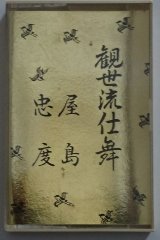 観世流仕舞
屋島
忠度